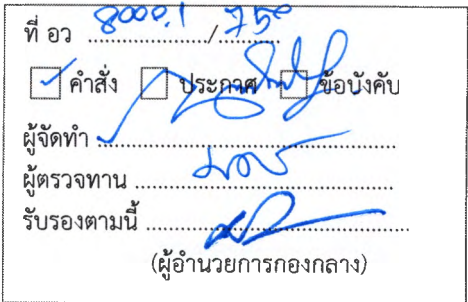 ที่ อว 8000.1 / 750
☑ คำสั่ง ☐ ประกาศ ☐ ข้อบังคับ
ผู้จัดทำ
ผู้ตรวจทาน
รับรองตามนี้
(ผู้อำนวยการกองกลาง)